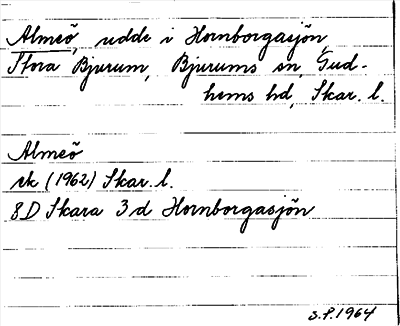 Almeö, udde i Hornborgasjön,
Stora Bjurum, Bjurums sn, Gud-
hems hd, Skar. l.
Almeö
rk (1962) Skar. l.
8D Skara 3d Hornborgasjön
S.F. 1964